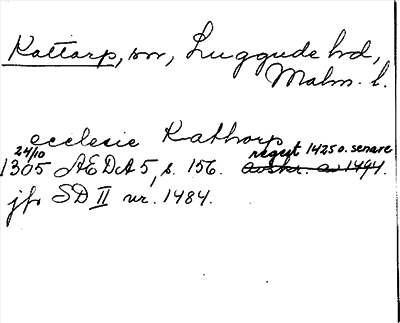 Kattarp, sn, Luggude hd,
Malm. l.
ecclesie Kathorp
24/10 regest 1425 o. senare
1305 ÆDA 5, s. 156. avskr. av 1494.
jfr SD II nr. 1484.